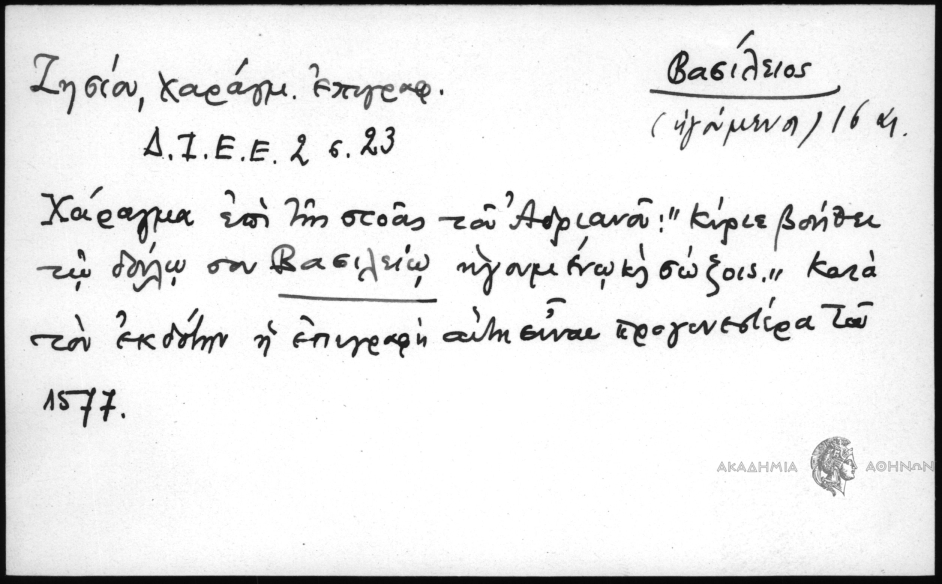 Ζησίου, Χαράγμ. ἐπιγραφ.
Βασίλειος
(ἡγούμενος) 16 αἰ.
Δ.Ι.Ε.Ε. 2 σ. 23
Χάραγμα ἐπὶ τῆς στοᾶς τοῦ Ἀδριανοῦ: "Κύριε βοήθει
τῷ δούλῳ σου Βασιλείῳ ἡγουμένῳ κὴ σώξοις." Κατὰ
τὸν ἐκδότην ἡ ἐπιγραφὴ αὕτη εἶναι προγενεστέρα τοῦ
1577.
ΑΚΑΔΗΜΙΑ ΑΘΗΝΩΝ